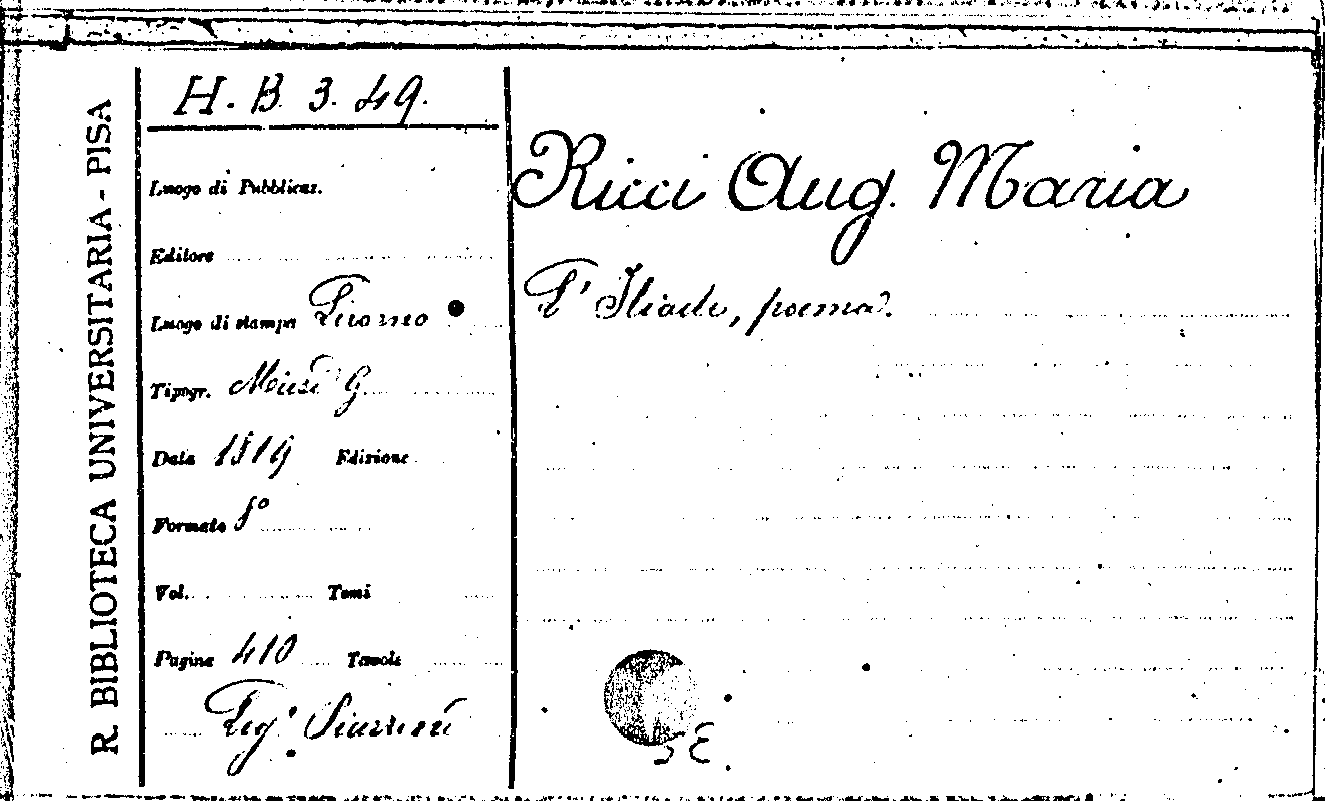 R. BIBLIOTECA UNIVERSITARIA - PISA
H. B. 3. 49.
Luogo di Pubblicaz.
Editore
Luogo di stampa Livorno
Tipogr. Masi G.
Data 1819 Edizione
Formato 8°
Vol. Tomi
Pagine 410 Tavole
Leg.
Ricci Aug. Maria
L'Iliade, poema.